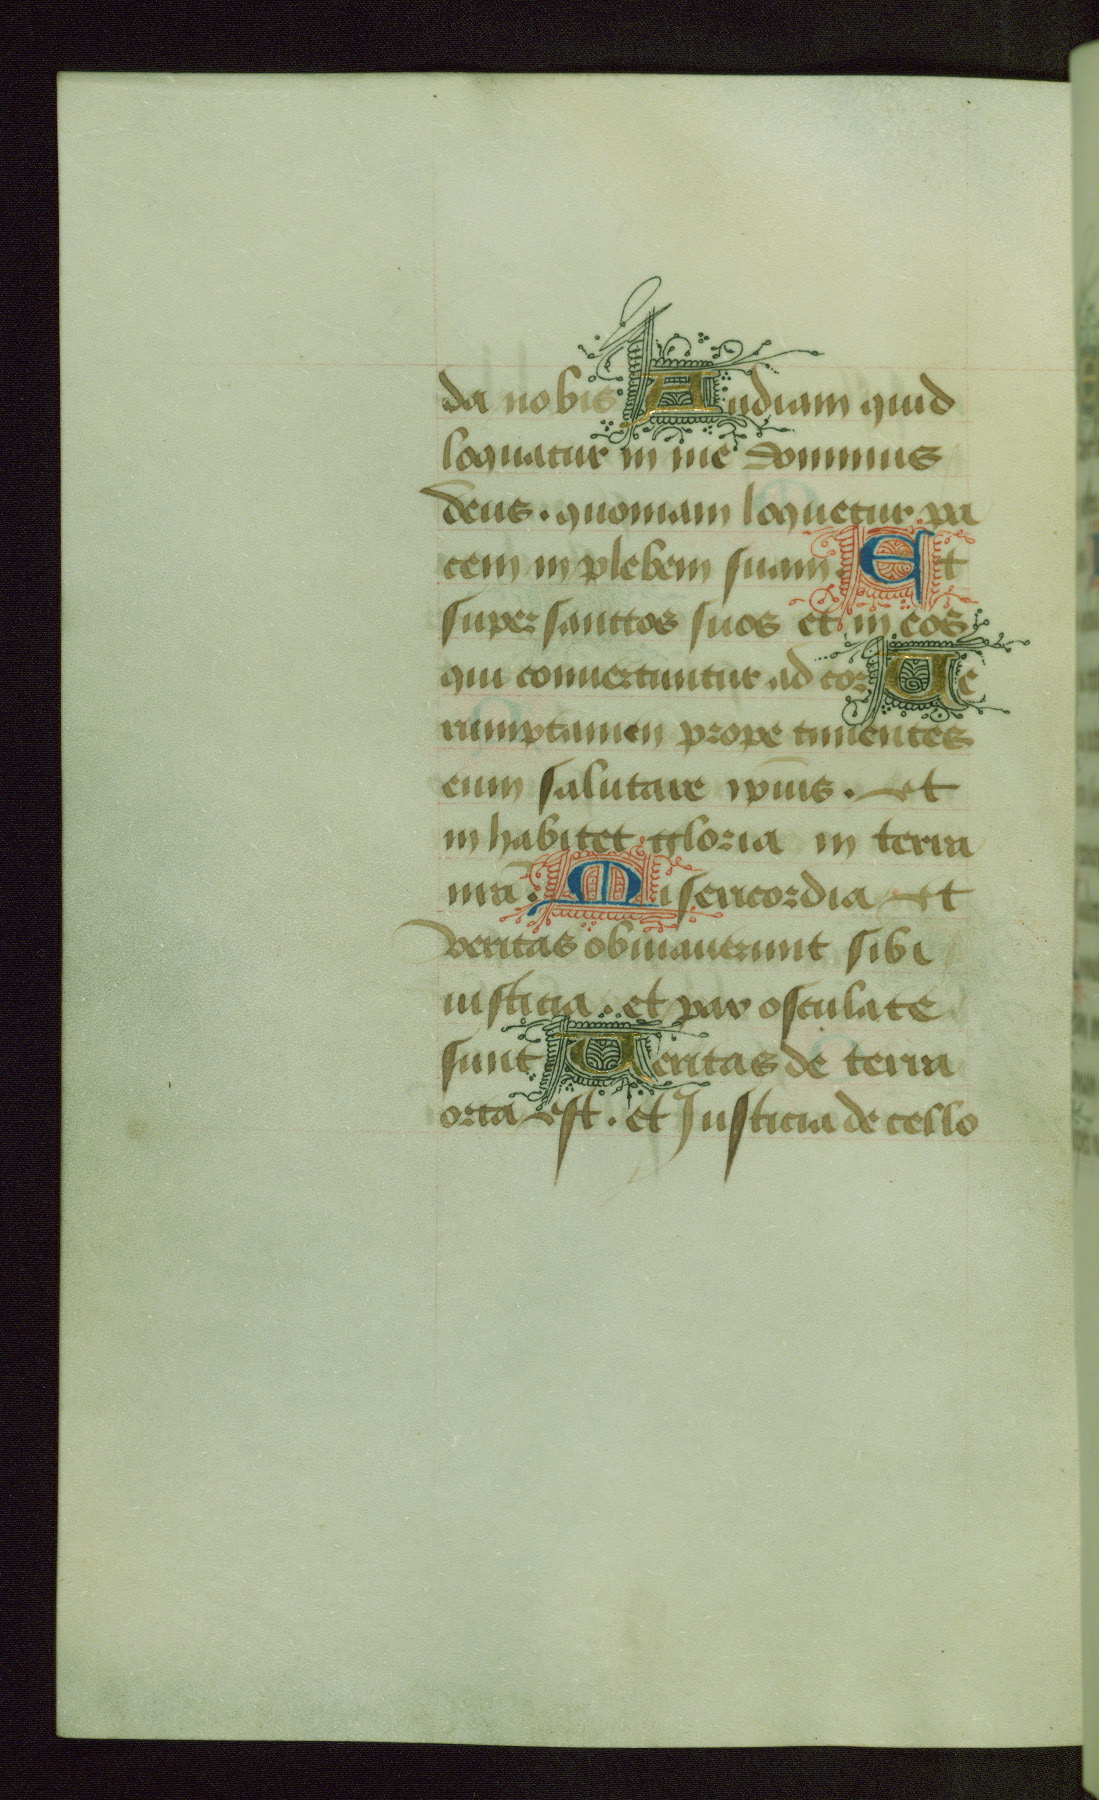 da nobis Audiam quid
loquatur in me dominus
deus. quoniam loquetur pa
cem in plebem suam. Et
super sanctos suos et in eos
qui convertuntur ad cor Ue
rumptamen prope timentes
eum salutare ipi̅us. et
inhabitet gloria in terra
nr̅a. Misericordia et
veritas obviaverunt sibi
iusticia. et pax osculate
sunt Ueritas de terra
orta est. et Justicia de cello